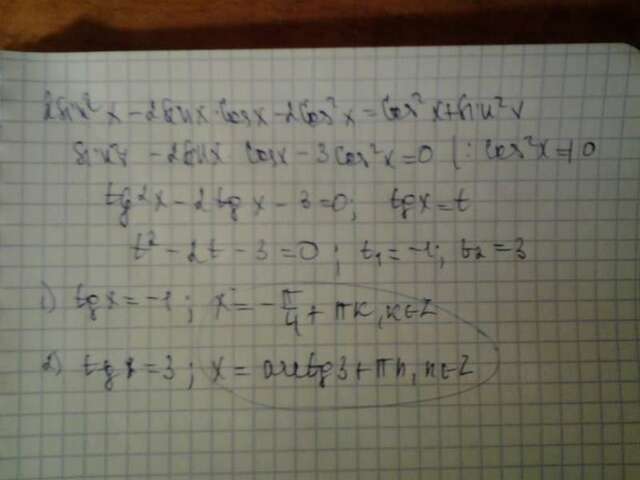 2sin²x - 2sinx·cosx - 2cos²x = cos²x + sin²x
sin²x - 2sinx cosx - 3cos²x = 0 | : cos²x ≠ 0
tg²x - 2tgx - 3 = 0; tgx = t
t² - 2t - 3 = 0; t₁ = -1; t₂ = 3
1) tgx = -1; x = -π/4 + πk, k∈Z
2) tgx = 3; x = arctg3 + πn, n∈Z